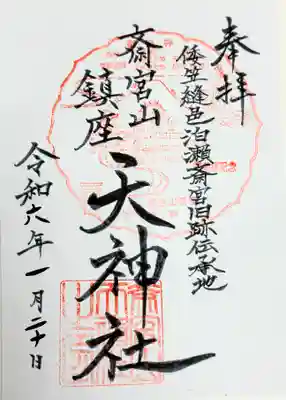 奉拝
倭笠縫邑泊瀬斎宮旧跡伝承地
斎宮山
鎮座
天神社
令和六年一月二十日